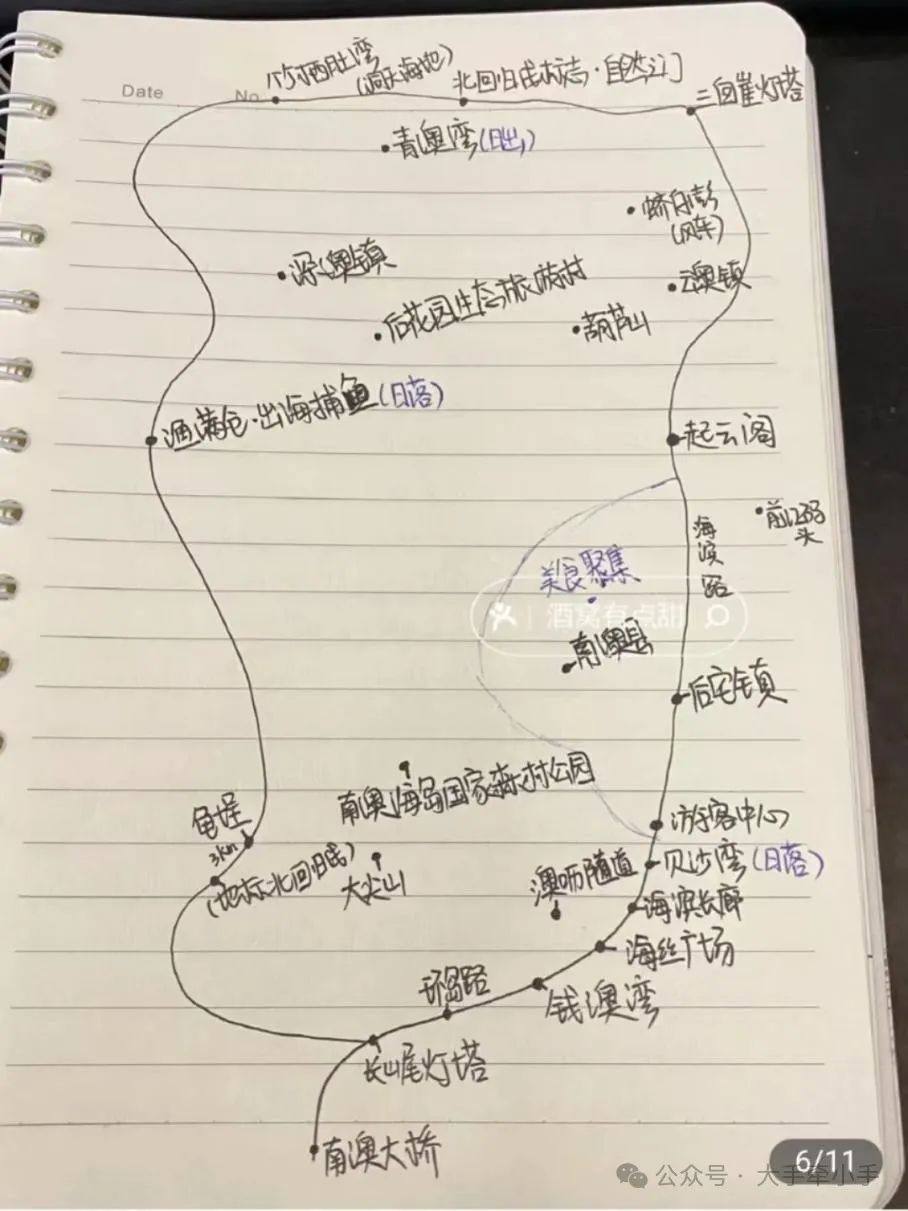 竹栖肚湾
(洞天海地)
北回归线标志·自然之门
三囱崖灯塔
Date
No
青澳湾(日出)
轿自彭
(风车)
深澳镇
云澳镇
后花园生态旅游村
葫芦山
渔满仓·出海捕鱼(日落)
起云阁
前江码
头
海滨路
美食聚集
酒窝有点甜
南澳县
后宅镇
南澳海岛国家森林公园
龟埕
3km
游客中心
(地标北回归线)
大尖山
澳呖隧道
贝沙湾(日落)
海滨长廊
海丝广场
环岛路
钱澳湾
长山尾灯塔
南澳大桥
6/11
公众号·大手牵小手